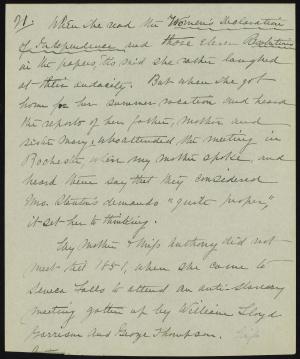 21. When she read the Women's Declaration
of Independence and those eleven Resolutions
in the papers, tis said she rather laughed
at their audacity. But when she got
home for her summer vacation and heard
the reports of her father, mother and
sister Mary, who attended the meeting in
Rochester, when my mother spoke, and
heard them say that they considered
Mrs. Stanton's demands "quite proper,"
it set her to thinking.
My Mother & Miss Anthony did not
meet till 1851, when she came to
Seneca Falls to attend an anti-slavery
meeting gotten up by William Lloyd
Garrison and George Thompson.